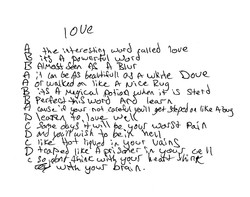 love
A the interesting word called love
B its A powerful word
B Almost seen As A Blur
A it can be As beautifull as a white Dove
A or walked on like A Nice Rug
B its A Magical potion when it is sterd
B Perfect this word And learn
A cause if your not careful you'll get stoped on like A bug
D learn to love well
C some days it will be your worst Pain
D And you'll wish to be in hell
C like Hot liquid in your vains
D traped like A prisoner in your cell
C so dont think with your heart think
with your brain.